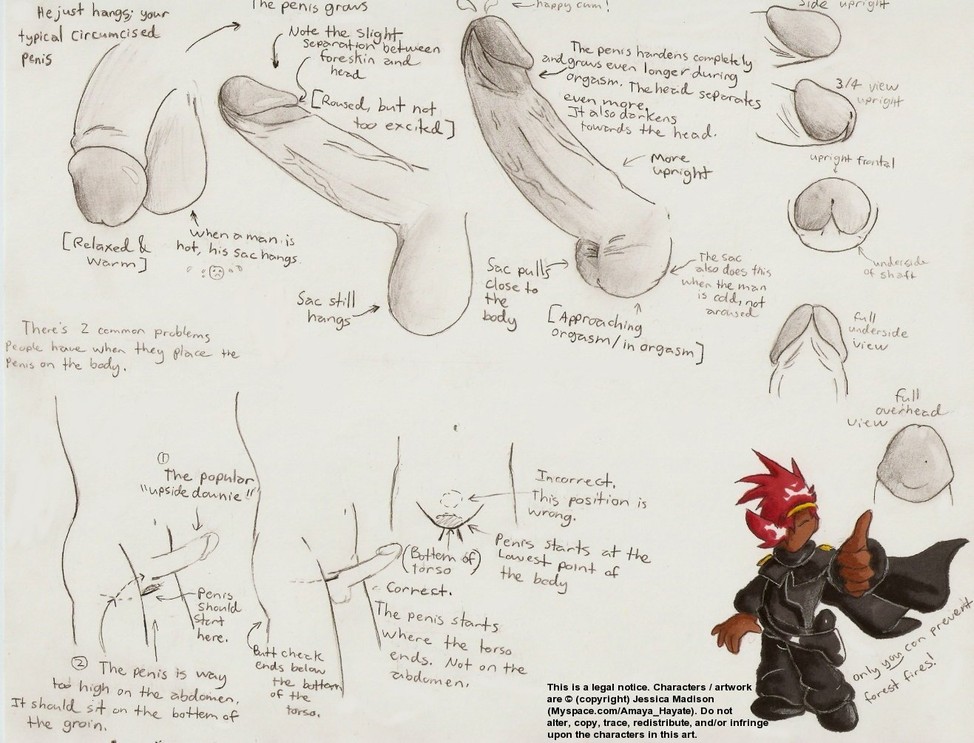 He just hangs; your
typical Circumcised
penis
The penis grows
Note the slight
separation between
foreskin and
head
[Roused, but not
too excited]
happy cum!
The penis hardens completely
and grows even longer during
orgasm. The head separates
even more.
It also darkens
towards the head.
More
upright
side upright
3/4 view
upright
upright frontal
underside
of shaft
[Relaxed &
Warm]
When a man is
hot, his sac hangs.
Sac still
hangs
Sac pulls
close to
the
body
[Approaching
orgasm/in orgasm]
The sac
also does this
when the man
is cold, not
aroused
full
underside
view
full
overhead
view
There's 2 common problems
People have when they place the
Penis on the body.
①
The popular
"upside downie"!
Penis
should
start
here.
② The penis is way
too high on the abdomen.
It should sit on the bottom of
the groin.
Butt cheek
ends below
the bottom
of the
torso.
(Bottom of
torso)
Correct.
The penis starts
where the torso
ends. Not on the
abdomen.
Incorrect.
This position is
wrong.
Penis starts at the
Lowest point of
the body
only you can prevent
forest fires!
This is a legal notice. Characters / artwork
are © (copyright) Jessica Madison
(Myspace.com/Amaya_Hayate). Do not
alter, copy, trace, redistribute, and/or infringe
upon the characters in this art.